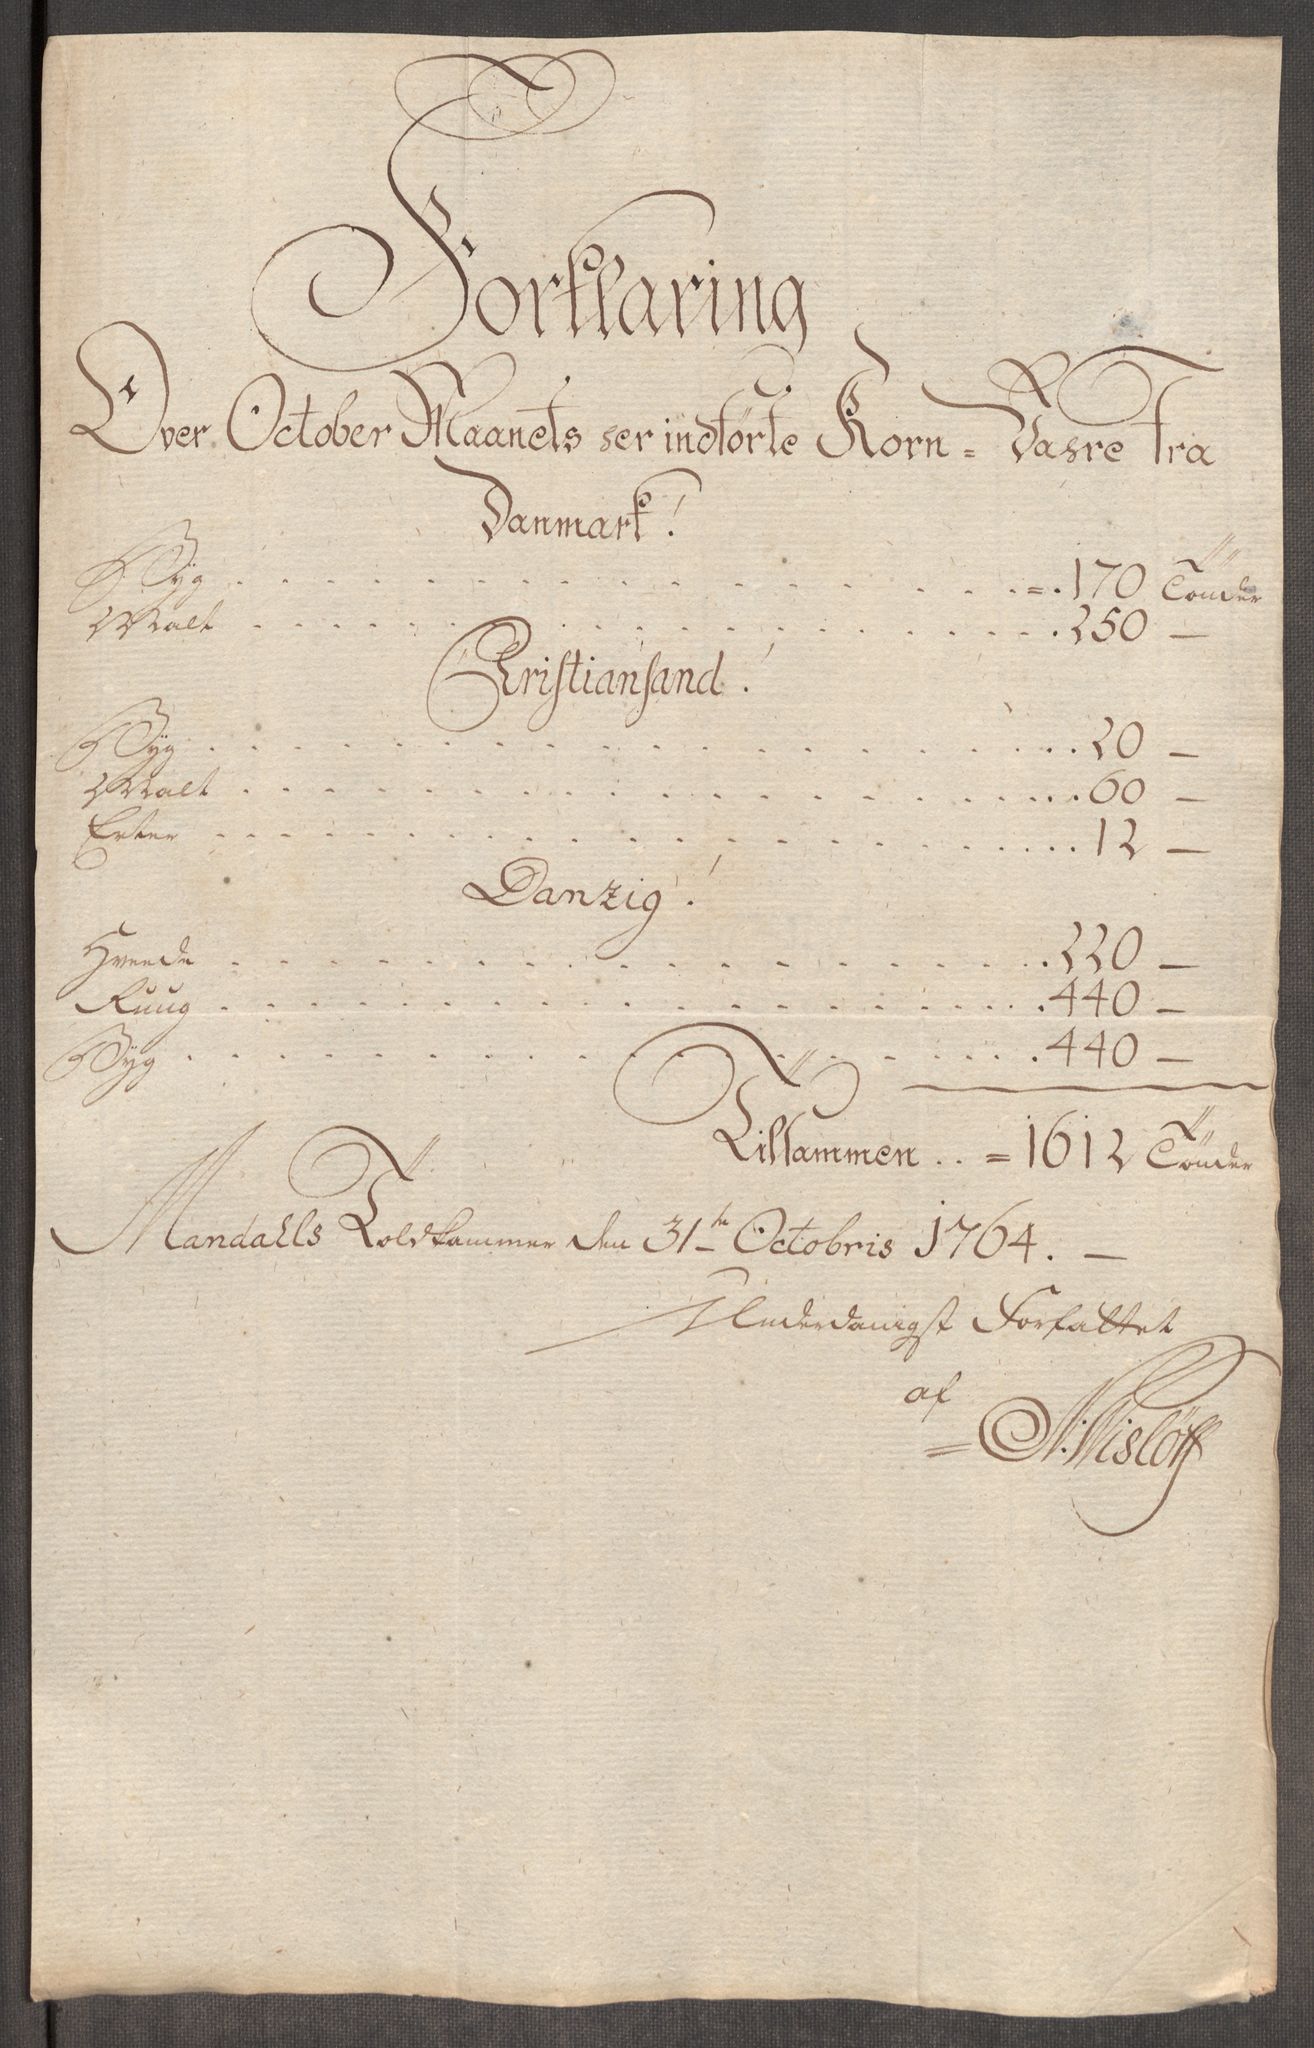 Forklaring
Over October Maanets her indførte Korn = Vahre Fra
Danmark!
Byg . . . . . = . 170 Tönder
Malt . . . . . 250 —
Christiansand!
Byg . . . . . 20 —
Malt . . . . . 60 —
Erter . . . . . 12 —
Danzig!
Hveede . . . . . 220 —
Ruug . . . . . 440 —
Byg . . . . . 440 —
Tilsammen . . = 1612 Tönder
Mandahls Toldkammer den 31te Octobris 1764. —
Underdanigst Forfattet
af
= N: Wislöff